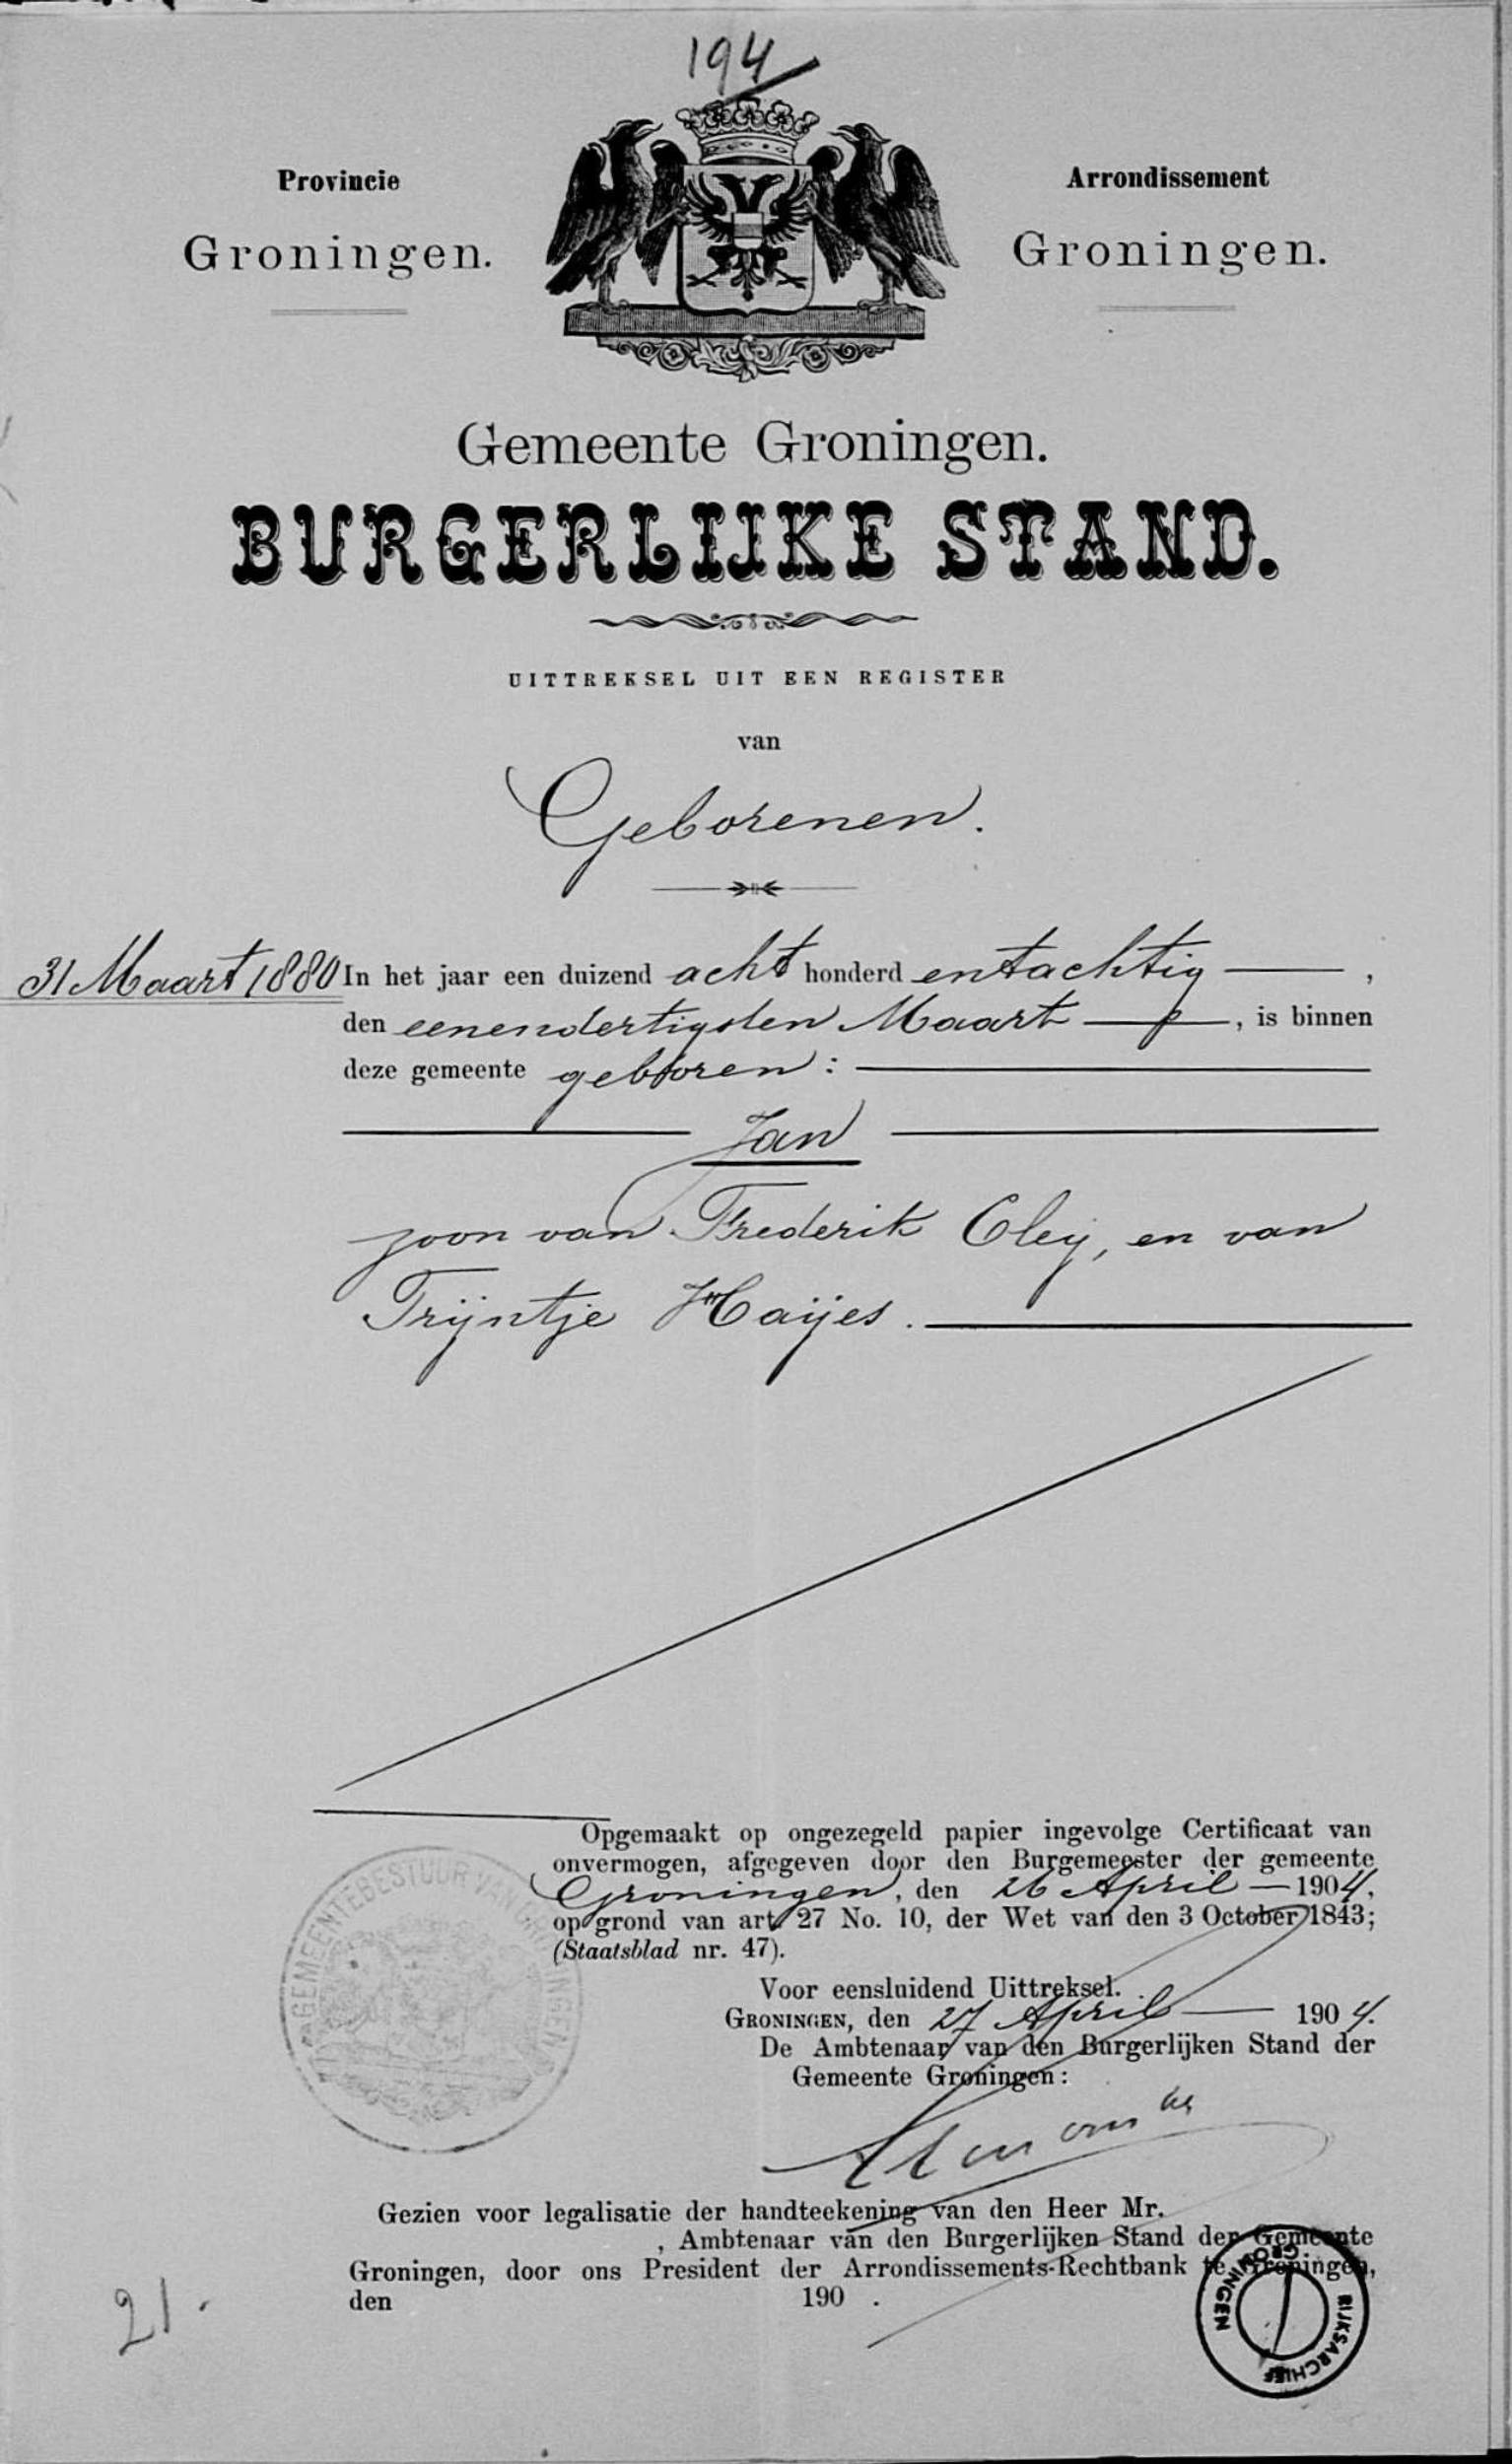 194
Provincie
Groningen.
Arrondissement
Groningen.
Gemeente Groningen.
BURGERLIJKE STAND.
UITTREKSEL UIT EEN REGISTER
van
Geborenen.
31 Maart 1880 In het jaar een duizend acht honderd en tachtig ,
den eenendertigsten Maart , is binnen
deze gemeente geboren:
Jan
zoon van Frederik Cley, en van
Trijntje Haijes.
Opgemaakt op ongezegeld papier ingevolge Certificaat van
onvermogen, afgegeven door den Burgemeester der gemeente
Groningen, den 26 April 1904,
op grond van art. 27 No. 10, der Wet van den 3 October 1843;
(Staatsblad nr. 47).
GEMEENTEBESTUUR VAN GRONINGEN
Voor eensluidend Uittreksel.
GRONINGEN, den 27 April 1904.
De Ambtenaar van den Burgerlijken Stand der
Gemeente Groningen:
Gezien voor legalisatie der handteekening van den Heer Mr.
, Ambtenaar van den Burgerlijken Stand der Gemeente
Groningen, door ons President der Arrondissements-Rechtbank te Groningen,
den 190 .
21.
RIJKSARCHIEF GRONINGEN